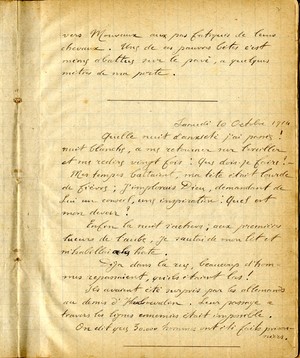 vers Mouveaux aux pas fatigués de leurs
chevaux. Une de ces pauvres bêtes s'est
même abattue sur le pavé, à quelques
mètres de ma porte.
Samedi 10 Octobre 1914
Quelle nuit d'anxiété j'ai passé !
nuit blanche, à me retourner sur l'oreiller
et me redire vingt fois : Que dois-je faire ! -
Mes tempes battaient, ma tête était lourde
de fièvre ; j'implorais Dieu, demandant de
Lui un conseil, une inspiration : Quel est
mon devoir !
Enfin la nuit s'achève ; aux premières
lueurs de l'aube, je sautai de mon lit et
m'habillai à la hâte.
Déjà dans la rue, beaucoup d'hom-
mes repassaient, qu'ils étaient las !
Ils avaient été surpris par les allemands
au démis d'. Leur passage à
travers les lignes ennemies était impossible.
On dit que 30.000 hommes ont été faits prison-
niers.